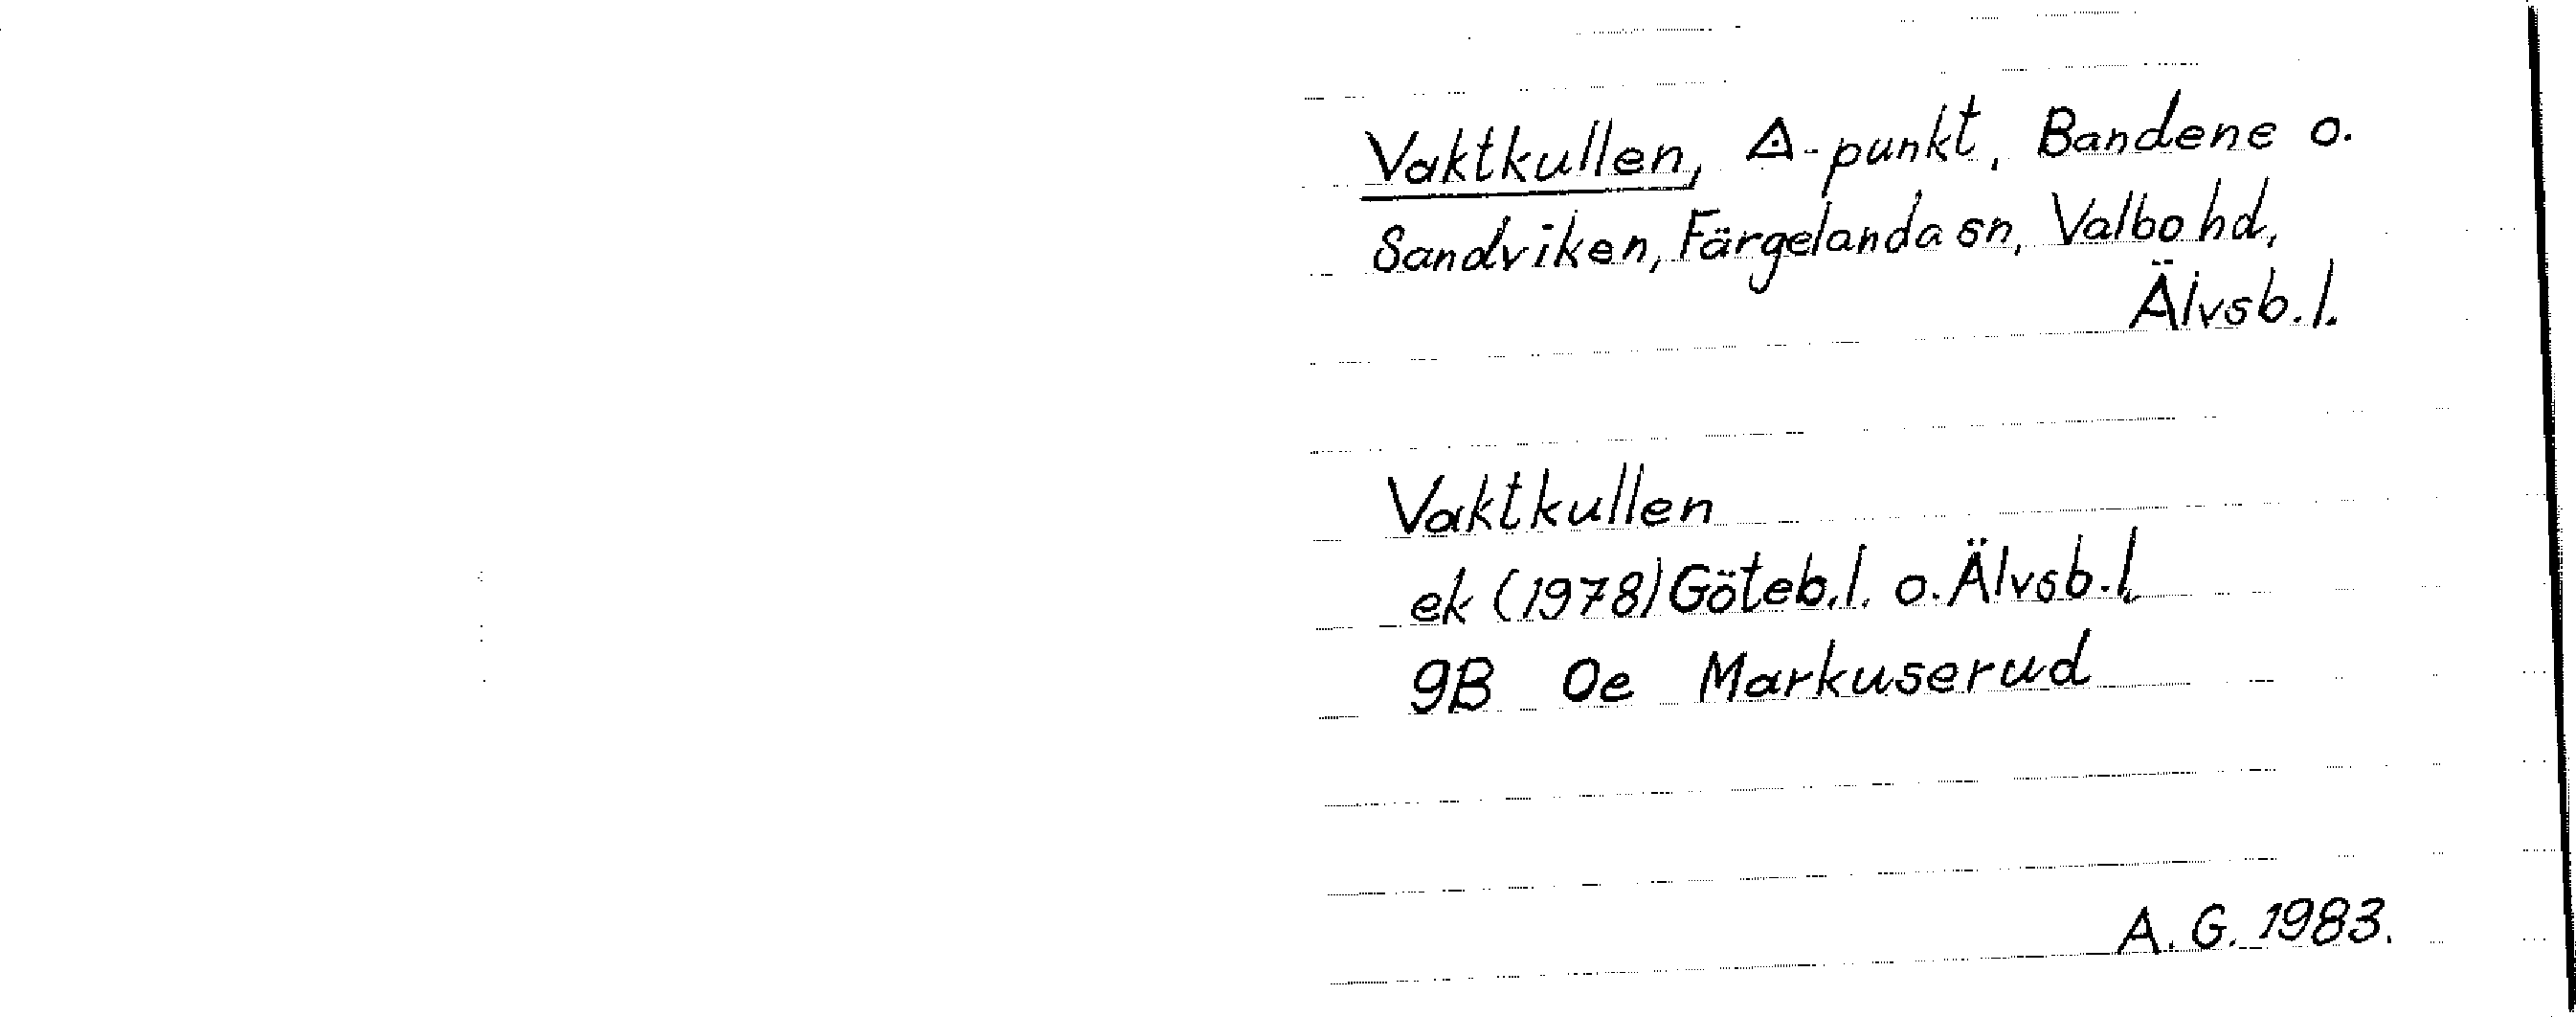 Vaktkullen, △-punkt, Bandene o.
Sandviken, Färgelanda sn, Valbo hd,
Älvsb.l.
Vaktkullen
ek (1978) Göteb.l. o. Älvsb.l.
9B 0e Markuserud
A. G. 1983.